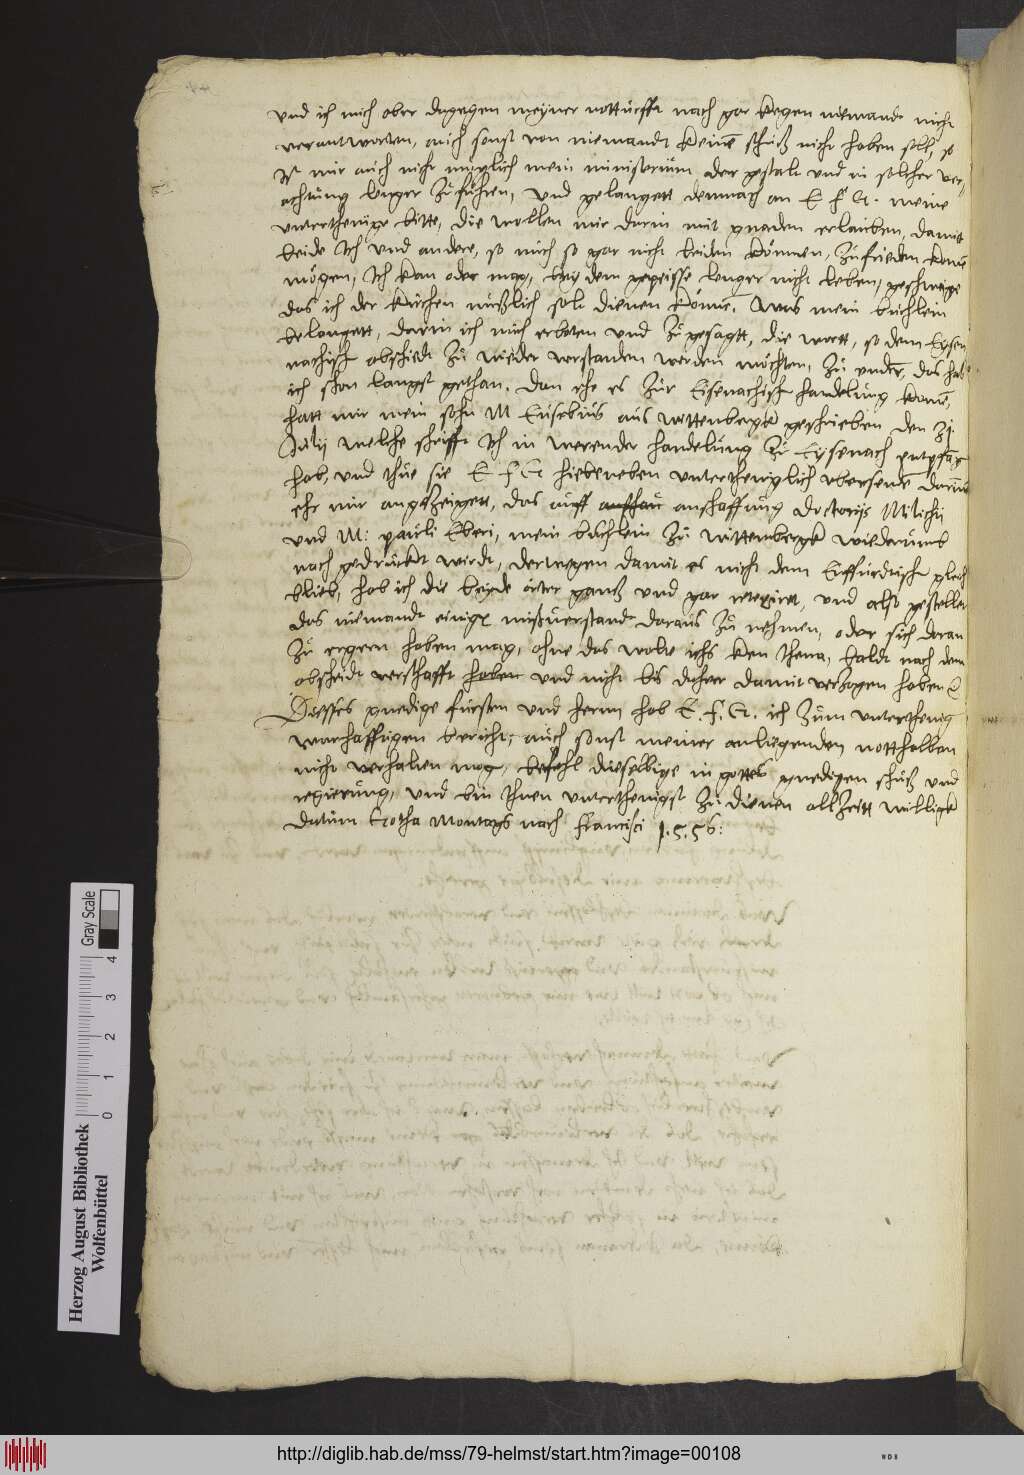 vnd ich mich aber dagegen meyner notturfft nach gar kegen niemandt nicht
verantworten, auch sonst von niemandt keinē schutz nicht haben soll, so
ist mir auch nicht muglich mein ministerium der gestalt vnd in solcher ver-
achtung lenger zufuhren, Vnd gelangett demnach an E f G. meine
vnterthenige bitte, die wollen mir darin mit gnaden erlauben, damit
beide Ich vnd andere, so mich so gar nicht leiden können, zufrieden komē
mögen, Ich kan oder mag, bey dem gepeisse lenger nicht leben, geschweige
das ich der kirchen nutzlich solt dienen könnē. Was mein buchlein
belangett, darin ich mich erboten vnd zugesagtt, die wortt, so dem Eysen
nachisch abschiedt zu wieder verstanden werden möchten, zu endeṝ, das hab
ich schon langst gethan. dan ehe es zur Eisenachisch handelung komē,
hatt mir mein sohn M Eusebius aus wittenbergk geschrieben den 21
Julij welche schrifft Ich in werender handelung zu Eysenach entpfāg
hab, vnd thue sie E f G hiebeneben vnterthenglich vbersendē darinē
ehr mir angetzeigett, das auff anschaffung doctoris Milichij
vnd M: pauli Eberi, mein buchlein zu wittembergk wiederumb
nach gedruckt wirdt, derwegen damit es nicht dem Erffurdtisch gleich
blieb, hab ich die beyde örter gantz vnd gar retexirt, vnd also gestellet
das niemandt einige mißuerstandt daraus zu nehmen, oder sich daran
zu ergern haben mag, ohne das wolt ichs ken Ihena, baldt nach dem
abscheidt verschafft haben vnd nicht bis daher damit vertzogen haben
Disses gnedige fursten vnd herrn hab E. f. G. ich zum vnterthenig
warhafftigen bericht, auch sonst meiner anliegenden nott halben
nicht verhalten mog, befehl dieselbige in gottes gnedigen schutz vnd
regierung, vnd bin Ihnen vnterthenigst zu dienen allzeitt willigk
datum Gotha Montags nach francisci 1.5.56:
Gray Scale
0 1 2 3 4
Herzog August Bibliothek
Wolfenbüttel
http://diglib.hab.de/mss/79-helmst/start.htm?image=00108
WDB